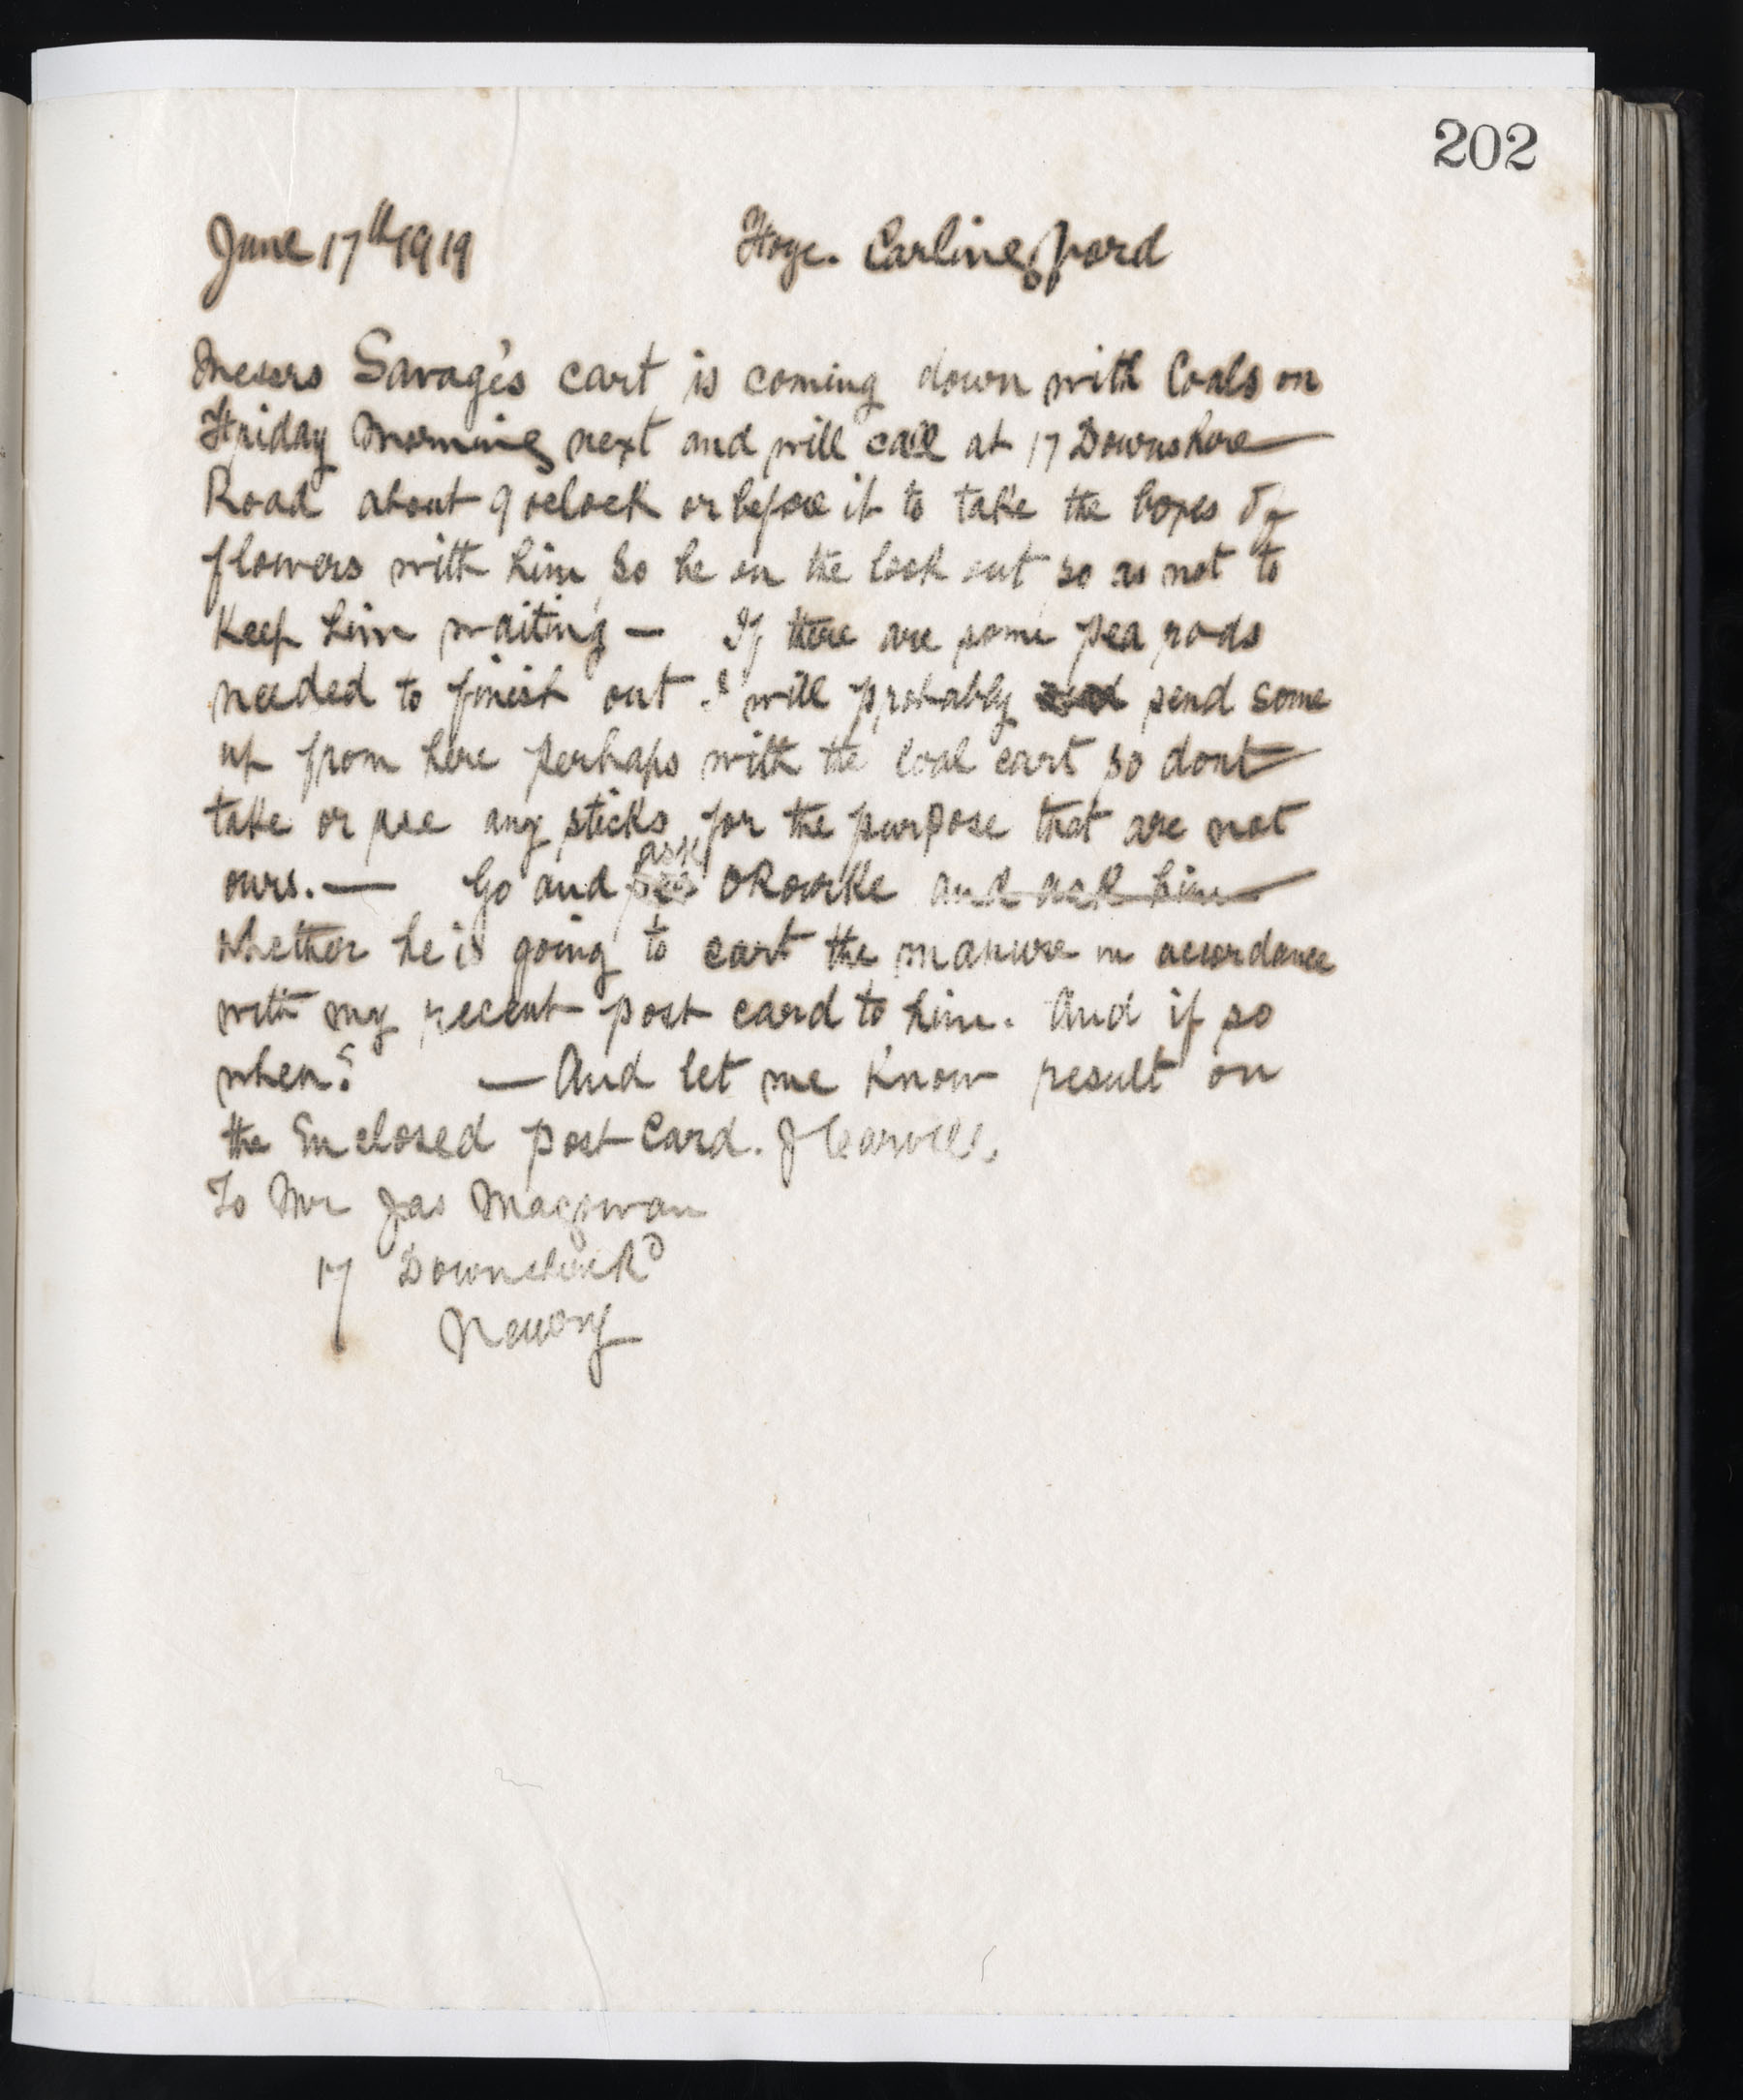 202
June 17th 1919 Carlingford
Messrs Savage's cart is coming down with Coals on
Friday Morning next and will call at 17 Downshire
Road about 9 oclock or before it to take the boxes of
flowers with him, So be on the look out so as not to
keep him waiting — If there are some pea rods
needed to finish out I will probably send some
up from here perhaps with the coal cart so dont
take or use any sticks for the purpose that are not
ours. — Go and ask ORourke and ask him
whether he is going to cart the manure in accordance
with my recent post card to him. And if so
when? — And let me know result on
the Enclosed post Card. J Carvill.
To Mr Jas Magowan
17 Downshire Rd
Newry